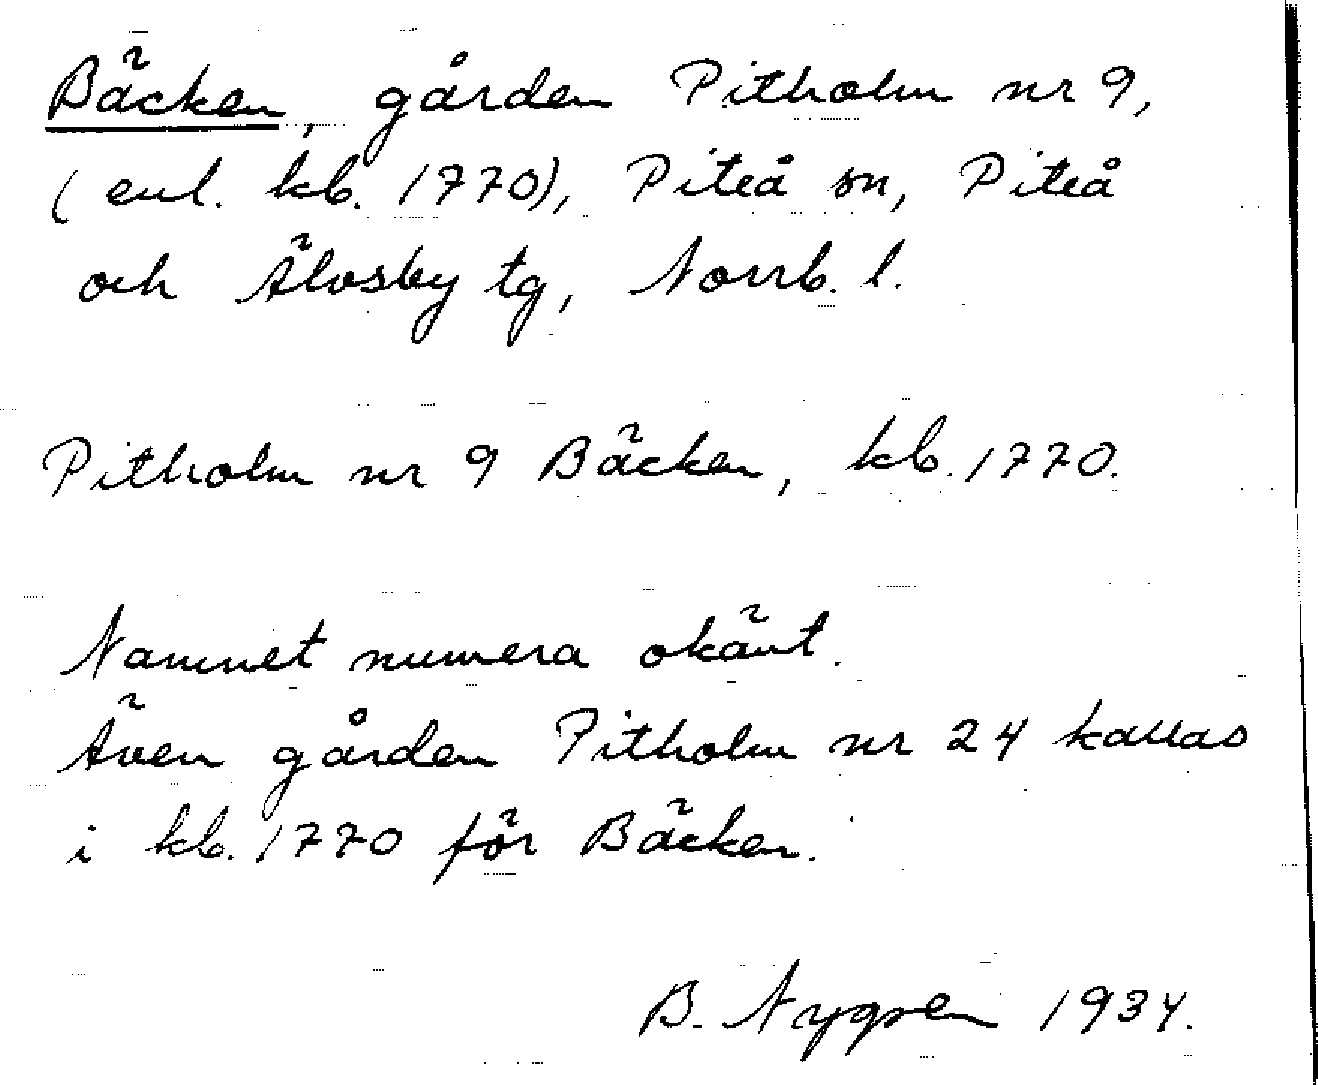 Bäcken, gården Pitholm nr 9,
(enl. kb. 1770), Piteå sn, Piteå
och Älvsby tg, Norrb. l.
Pitholm nr 9 Bäcken, kb. 1770.
Namnet numera okänt.
Även gården Pitholm nr 24 kallas
i kb. 1770 för Bäcken.
B. Nygren 1934.